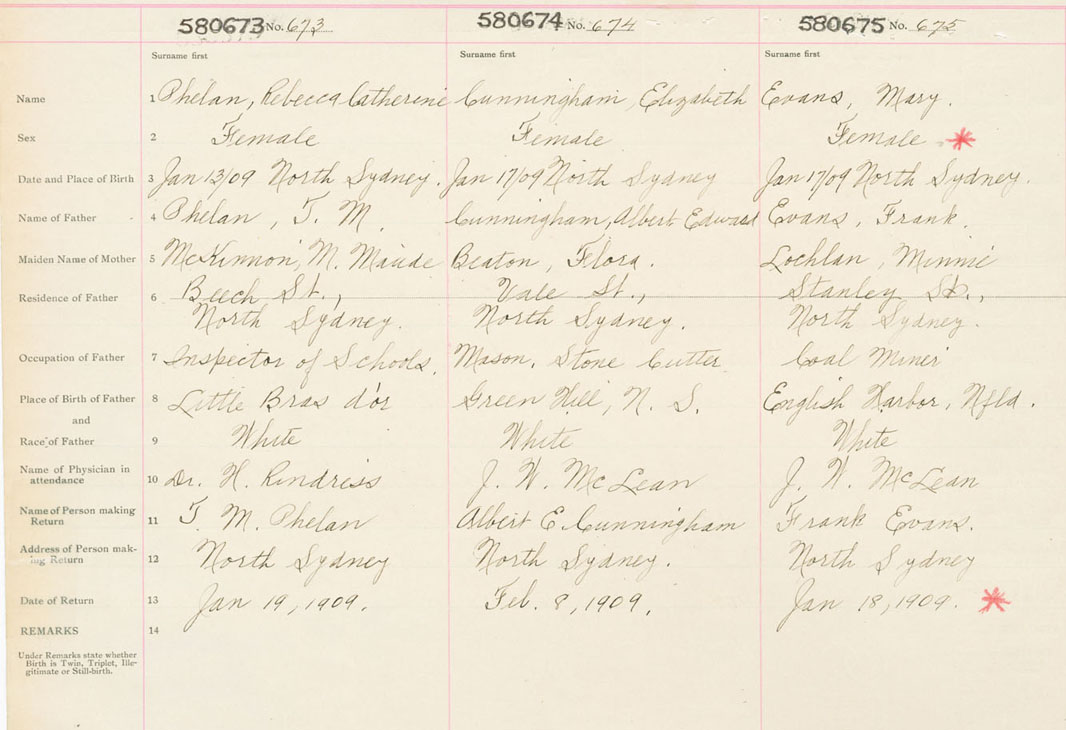 580673 No. 673 580674 No. 674 580675 No. 675
Surname first Surname first Surname first
Name 1 Phelan, Rebecca Catherine Cunningham, Elizabeth Evans, Mary.
Sex 2 Female Female Female
Date and Place of Birth 3 Jan 13/09 North Sydney. Jan 17/09 North Sydney Jan 17/09 North Sydney.
Name of Father 4 Phelan, T. M. Cunningham, Albert Edward Evans, Frank.
Maiden Name of Mother 5 McKinnon, M. Maude Beaton, Flora. Lochlan, Minnie
Residence of Father 6 Beech St., Vale St., Stanley St.,
North Sydney. North Sydney. North Sydney.
Occupation of Father 7 Inspector of Schools. Mason, Stone Cutter Coal Miner
Place of Birth of Father 8 Little Bras d'or Green Hill, N. S. English Harbor, Nfld.
and
Race of Father 9 White White White
Name of Physician in
attendance 10 Dr. H. Rindress J. W. McLean J. W. McLean
Name of Person making
Return 11 T. M. Phelan Albert E. Cunningham Frank Evans.
Address of Person mak-
ing Return 12 North Sydney North Sydney. North Sydney
Date of Return 13 Jan 19, 1909. Feb. 8, 1909. Jan 18, 1909.
REMARKS 14
Under Remarks state whether
Birth is Twin, Triplet, Ille-
gitimate or Still-birth.